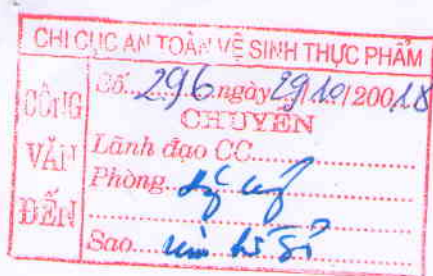 CHI CỤC AN TOÀN VỆ SINH THỰC PHẨM
CÔNG VĂN ĐẾN
Số...296.ngày 29/10/20018
CHUYỂN
Lãnh đạo CC
Phòng
Sao